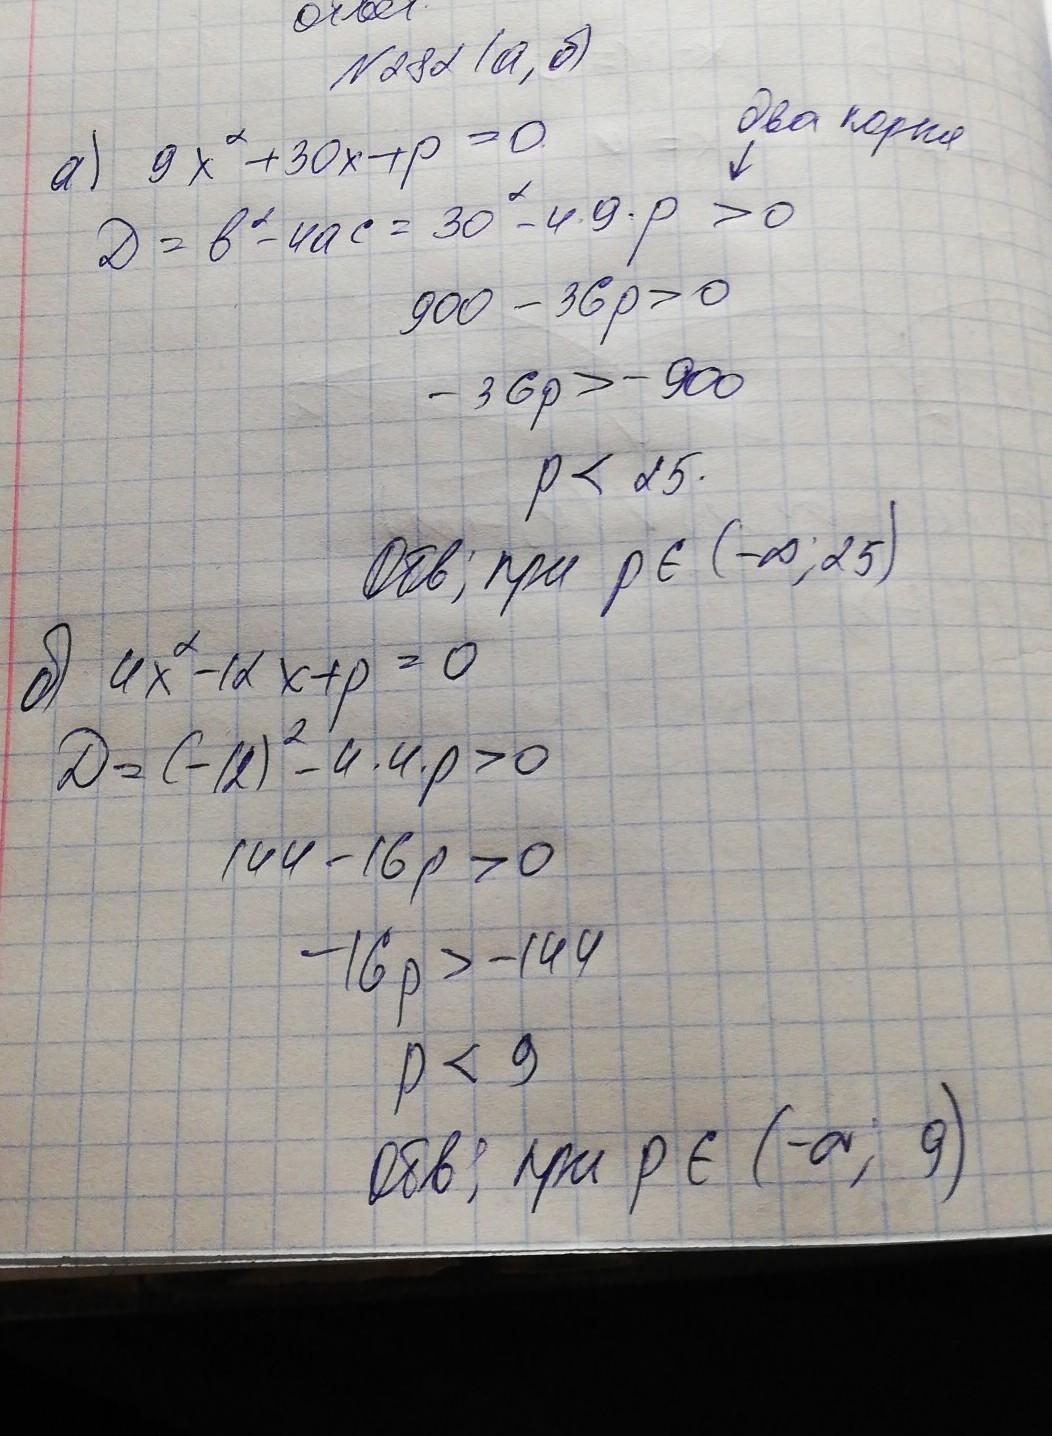 ответ.
№282 (а, б)
два корня
↓
а) 9x²+30x+p=0
Д = b²-4ac = 30²-4·9·p > 0
900 - 36p > 0
-36p > -900
p < 25.
Отв; при p ∈ (-∞; 25)
б) 4x²-12x+p=0
Д = (-12)²-4·4·p > 0
144-16p > 0
-16p > -144
p < 9
Отв; при p ∈ (-∞; 9)